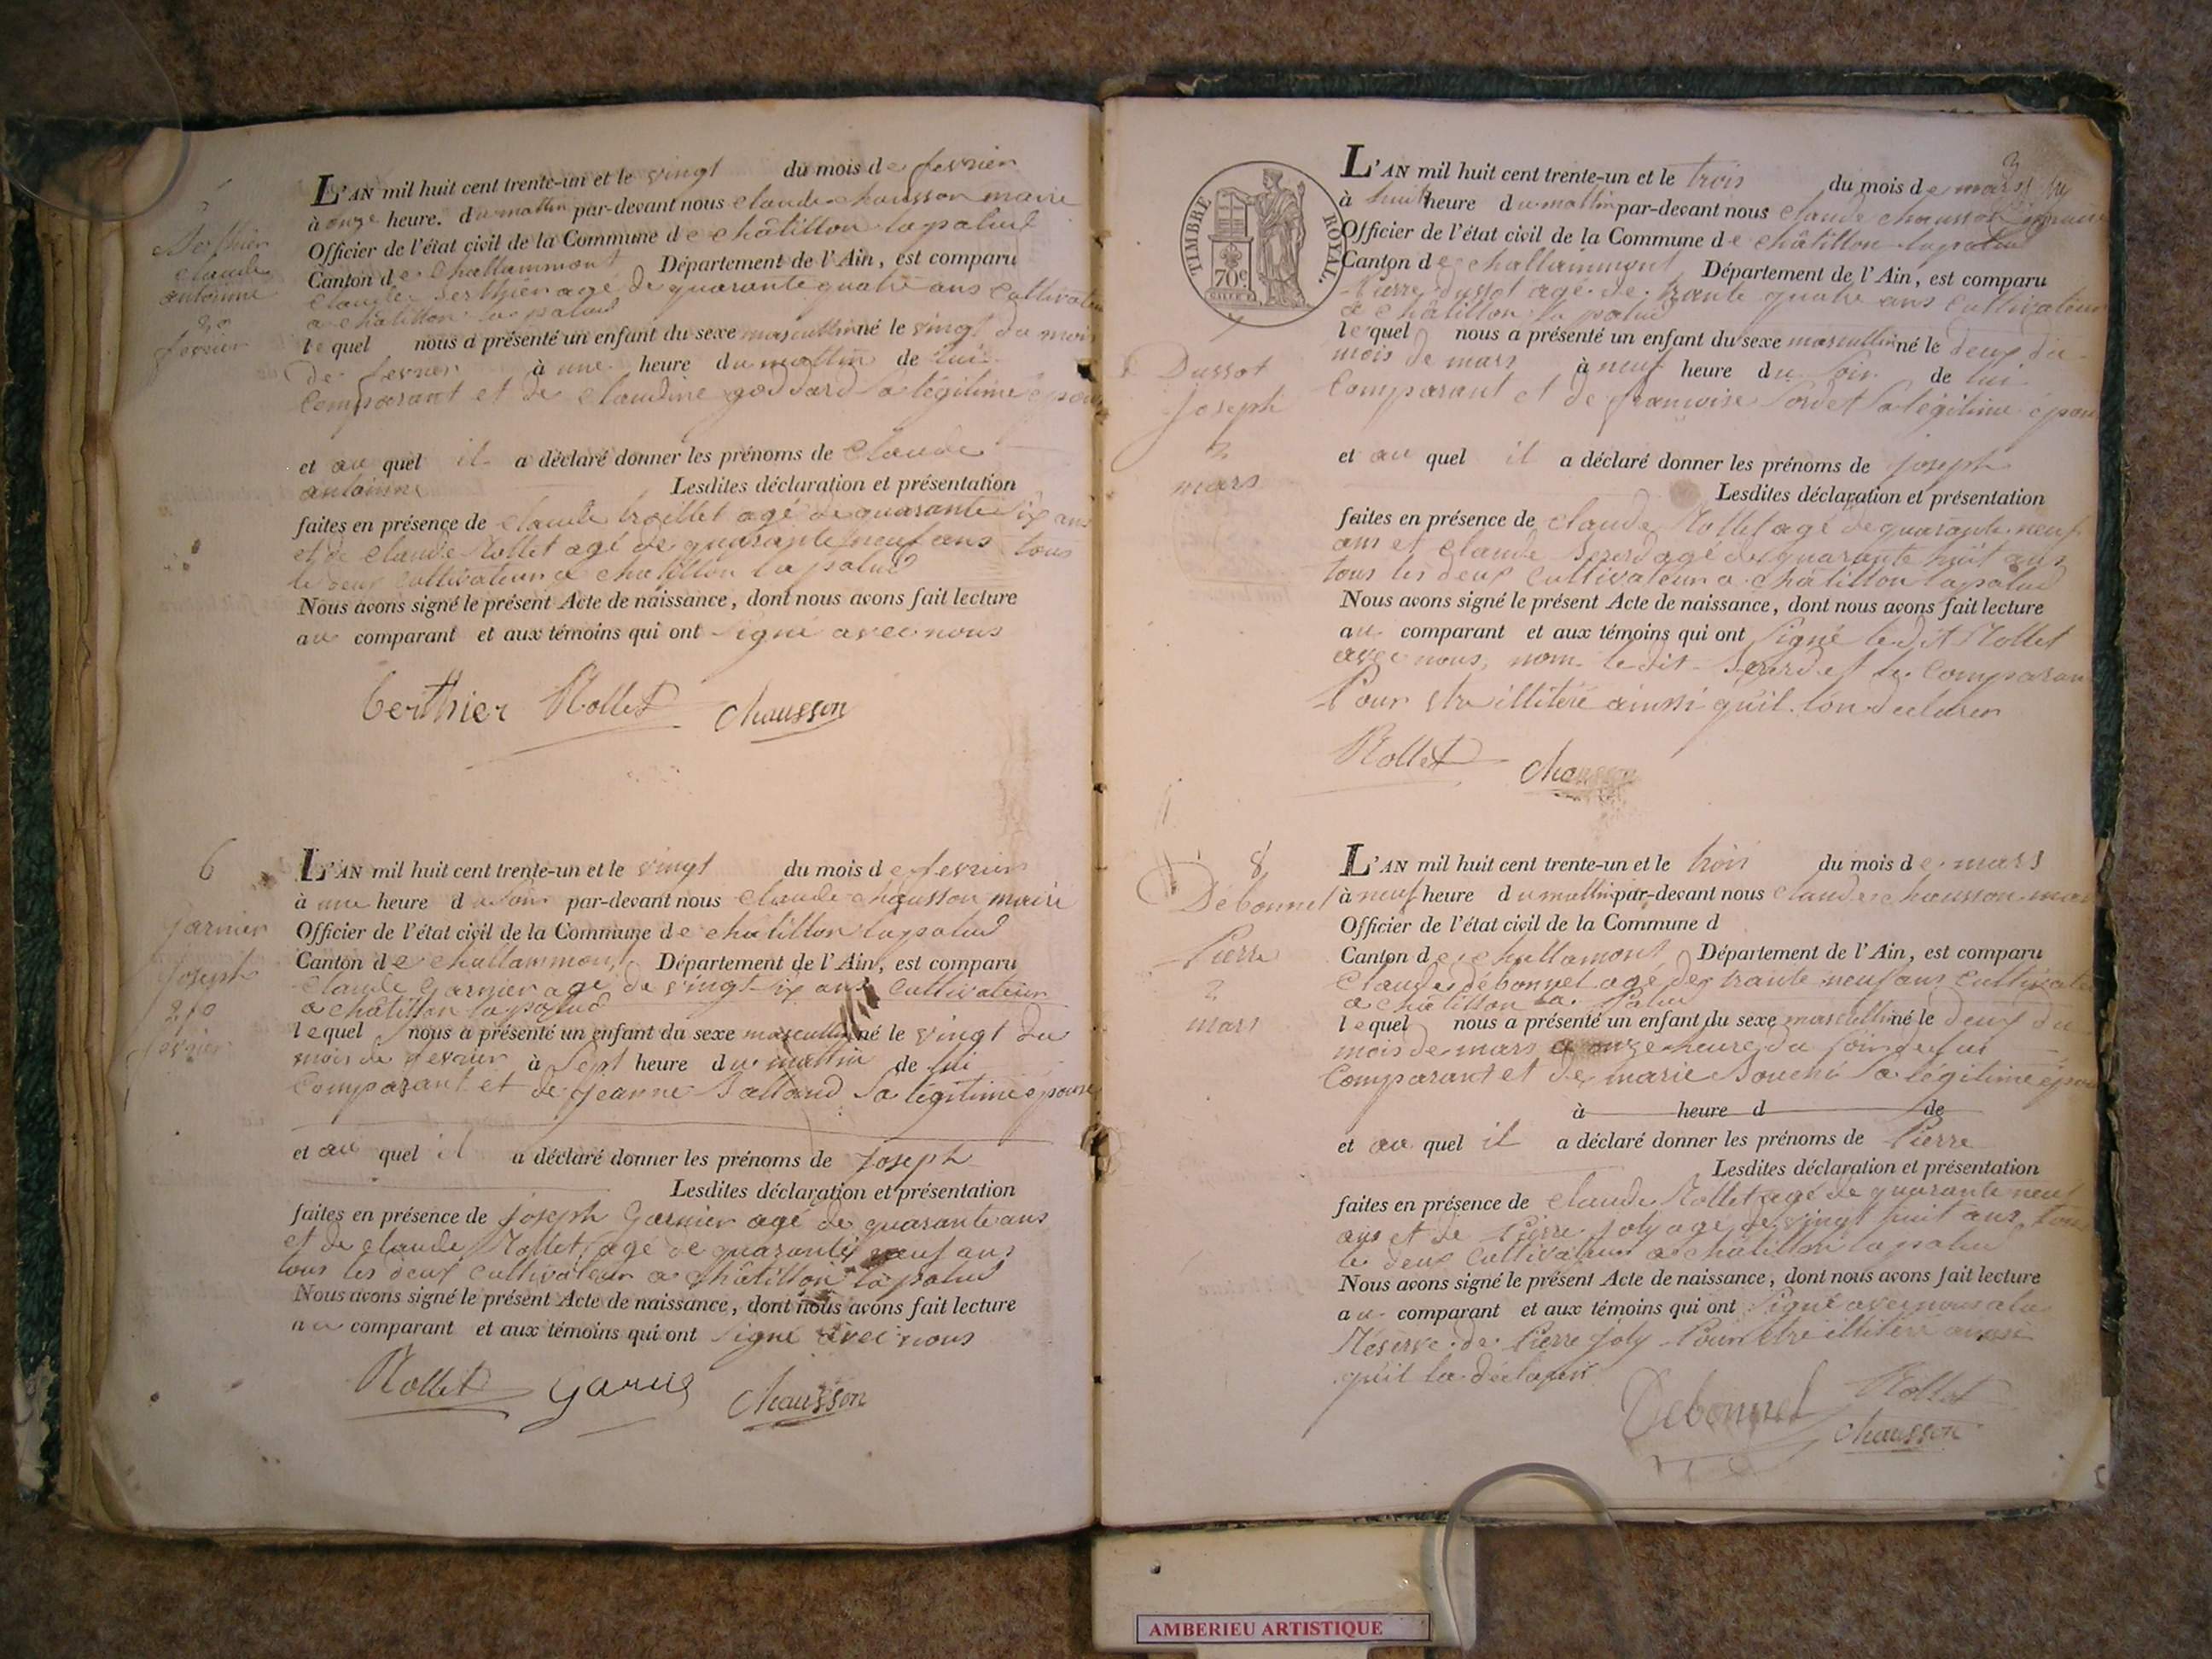 5
Berthier
Claude
antoinne
20
fevrier
L'AN mil huit cent trente-un et le vingt du mois de fevrier
à onze heure. du mattin par-devant nous claude chausson maire
Officier de l'état civil de la Commune de châtillon lapalud
Canton de challammont Département de l'Ain, est comparu
claude berthier agé de quarante quatre ans Cultivateur
a châtillon la palud
lequel nous a présenté un enfant du sexe mascullin né le vingt du mois
de fevrier à une heure du mattin de lui
Comparant et de claudine goddard sa légitime épouse
et au quel il a déclaré donner les prénoms de claude
antoinne Lesdites déclaration et présentation
faites en présence de claude agé de quarante six ans
et de claude Nollet agé de quarante neuf ans tous
le deux Cultivateur a châtillon lapalud
Nous avons signé le présent Acte de naissance, dont nous avons fait lecture
au comparant et aux témoins qui ont signé avec nous
berthier Nollet chausson
6
garnier
joseph
20
fevrier
L'AN mil huit cent trente-un et le vingt du mois de fevrier
à une heure du soir par-devant nous claude chausson maire
Officier de l'état civil de la Commune de châtillon lapalud
Canton de challammont Département de l'Ain, est comparu
claude garnier agé de vingt six ans Cultivateur
a châtillon lapalud
lequel nous a présenté un enfant du sexe mascullin né le vingt du
mois de fevrier à sept heure du mattin de lui
Comparant et de jeanne balland sa légitime épouse
et au quel il a déclaré donner les prénoms de joseph
Lesdites déclaration et présentation
faites en présence de joseph garnier agé de quarante ans
et de claude Nollet agé de quarante neuf ans
tous les deux Cultivateur a châtillon lapalud
Nous avons signé le présent Acte de naissance, dont nous avons fait lecture
au comparant et aux témoins qui ont signé avec nous
Nollet chausson
3
TIMBRE ROYAL.
70c
7
Dussot
joseph
2
mars
L'AN mil huit cent trente-un et le trois du mois de mars
à huit heure du mattin par-devant nous claude chausson maire
Officier de l'état civil de la Commune de châtillon lapalud
Canton de challammont Département de l'Ain, est comparu
Pierre dussot agé de trante quatre ans Cultivateur
a châtillon la palud
lequel nous a présenté un enfant du sexe mascullin né le deux du
mois de mars à neuf heure du soir de lui
Comparant et de françoise sordet sa légitime épouse
et au quel il a déclaré donner les prénoms de joseph
Lesdites déclaration et présentation
faites en présence de claude Nollet agé de quarante neuf
ans et claude agé de quarante huit ans
tous les deux Cultivateur a châtillon lapalud
Nous avons signé le présent Acte de naissance, dont nous avons fait lecture
au comparant et aux témoins qui ont signé le dit Nollet
avec nous, nom le dit et le Comparant
Pour etre illiteré ainssi qu'il l'on declarer
Nollet chausson
8
Debonnel
Pierre
2
mars
L'AN mil huit cent trente-un et le trois du mois de mars
à neuf heure du mattin par-devant nous claude chausson maire
Officier de l'état civil de la Commune d
Canton de challamont Département de l'Ain, est comparu
claude débonnel agé de trante neuf ans Cultivateur
a châtillon la palud
lequel nous a présenté un enfant du sexe mascullin né le deux du
mois de mars a onze heure du soir de lui
Comparant et de marie bouché sa légitime épouse
à heure d de
et au quel il a déclaré donner les prénoms de Pierre
Lesdites déclaration et présentation
faites en présence de claude Nollet agé de quarante neuf
ans et de Pierre joly agé de vingt huit ans tous
le deux Cultivateur a châtillon lapalud
Nous avons signé le présent Acte de naissance, dont nous avons fait lecture
au comparant et aux témoins qui ont signé avec nous a la
Réserve de Pierre joly Pour etre illiteré ainssi
qu'il la déclarer
Debonnel Nollet
chausson
AMBERIEU ARTISTIQUE